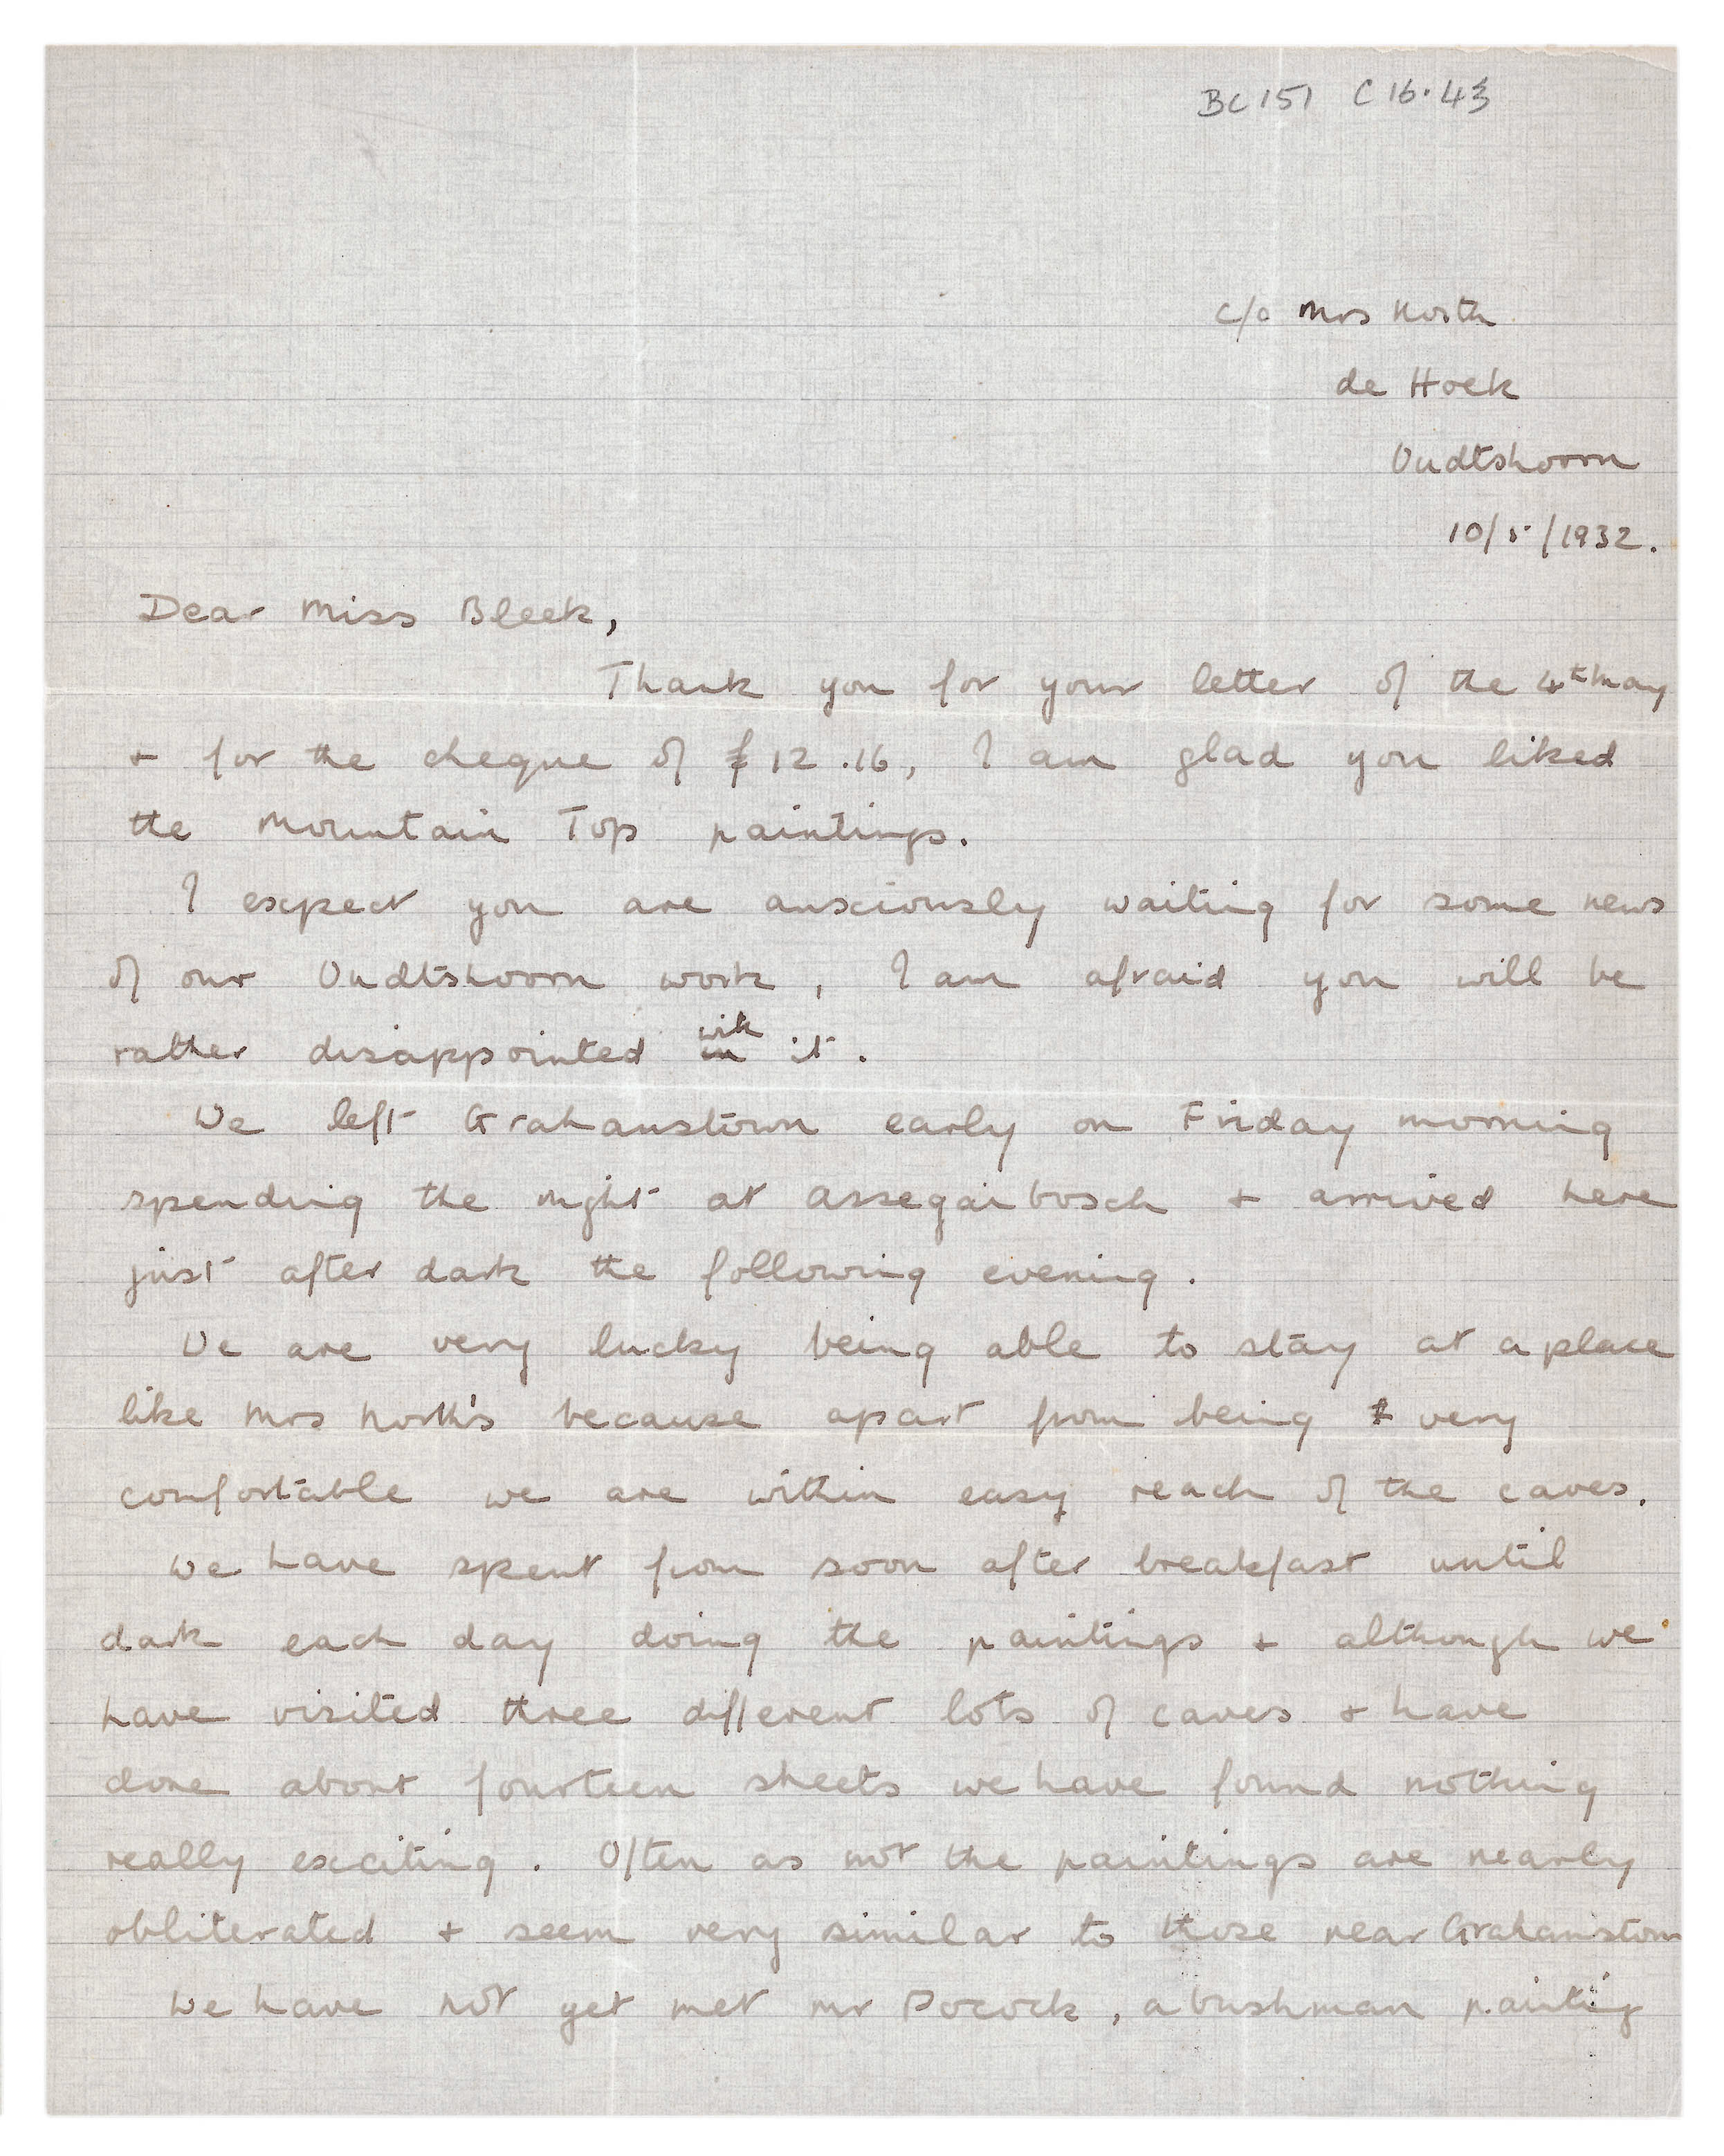 BC151 C16.43
c/o Mrs North
de Hoek
Oudtshoorn
10/5/1932.
Dear Miss Bleek,
Thank you for your letter of the 4th May
+ for the cheque of £12.16, I am glad you liked
the Mountain Top paintings.
I expect you are anxiously waiting for some news
of our Oudtshoorn work, I am afraid you will be
rather disappointed with it.
We left Grahamstown early on Friday morning
spending the night at Assegaibosch + arrived here
just after dark the following evening.
We are very lucky being able to stay at a place
like Mrs North's because apart from being very
comfortable we are within easy reach of the caves.
We have spent from soon after breakfast until
dark each day doing the paintings + although we
have visited three different lots of caves + have
done about fourteen sheets we have found nothing
really exciting. Often as not the paintings are nearly
obliterated + seem very similar to those near Grahamstown
We have not yet met Mr Pocock, a bushman painting